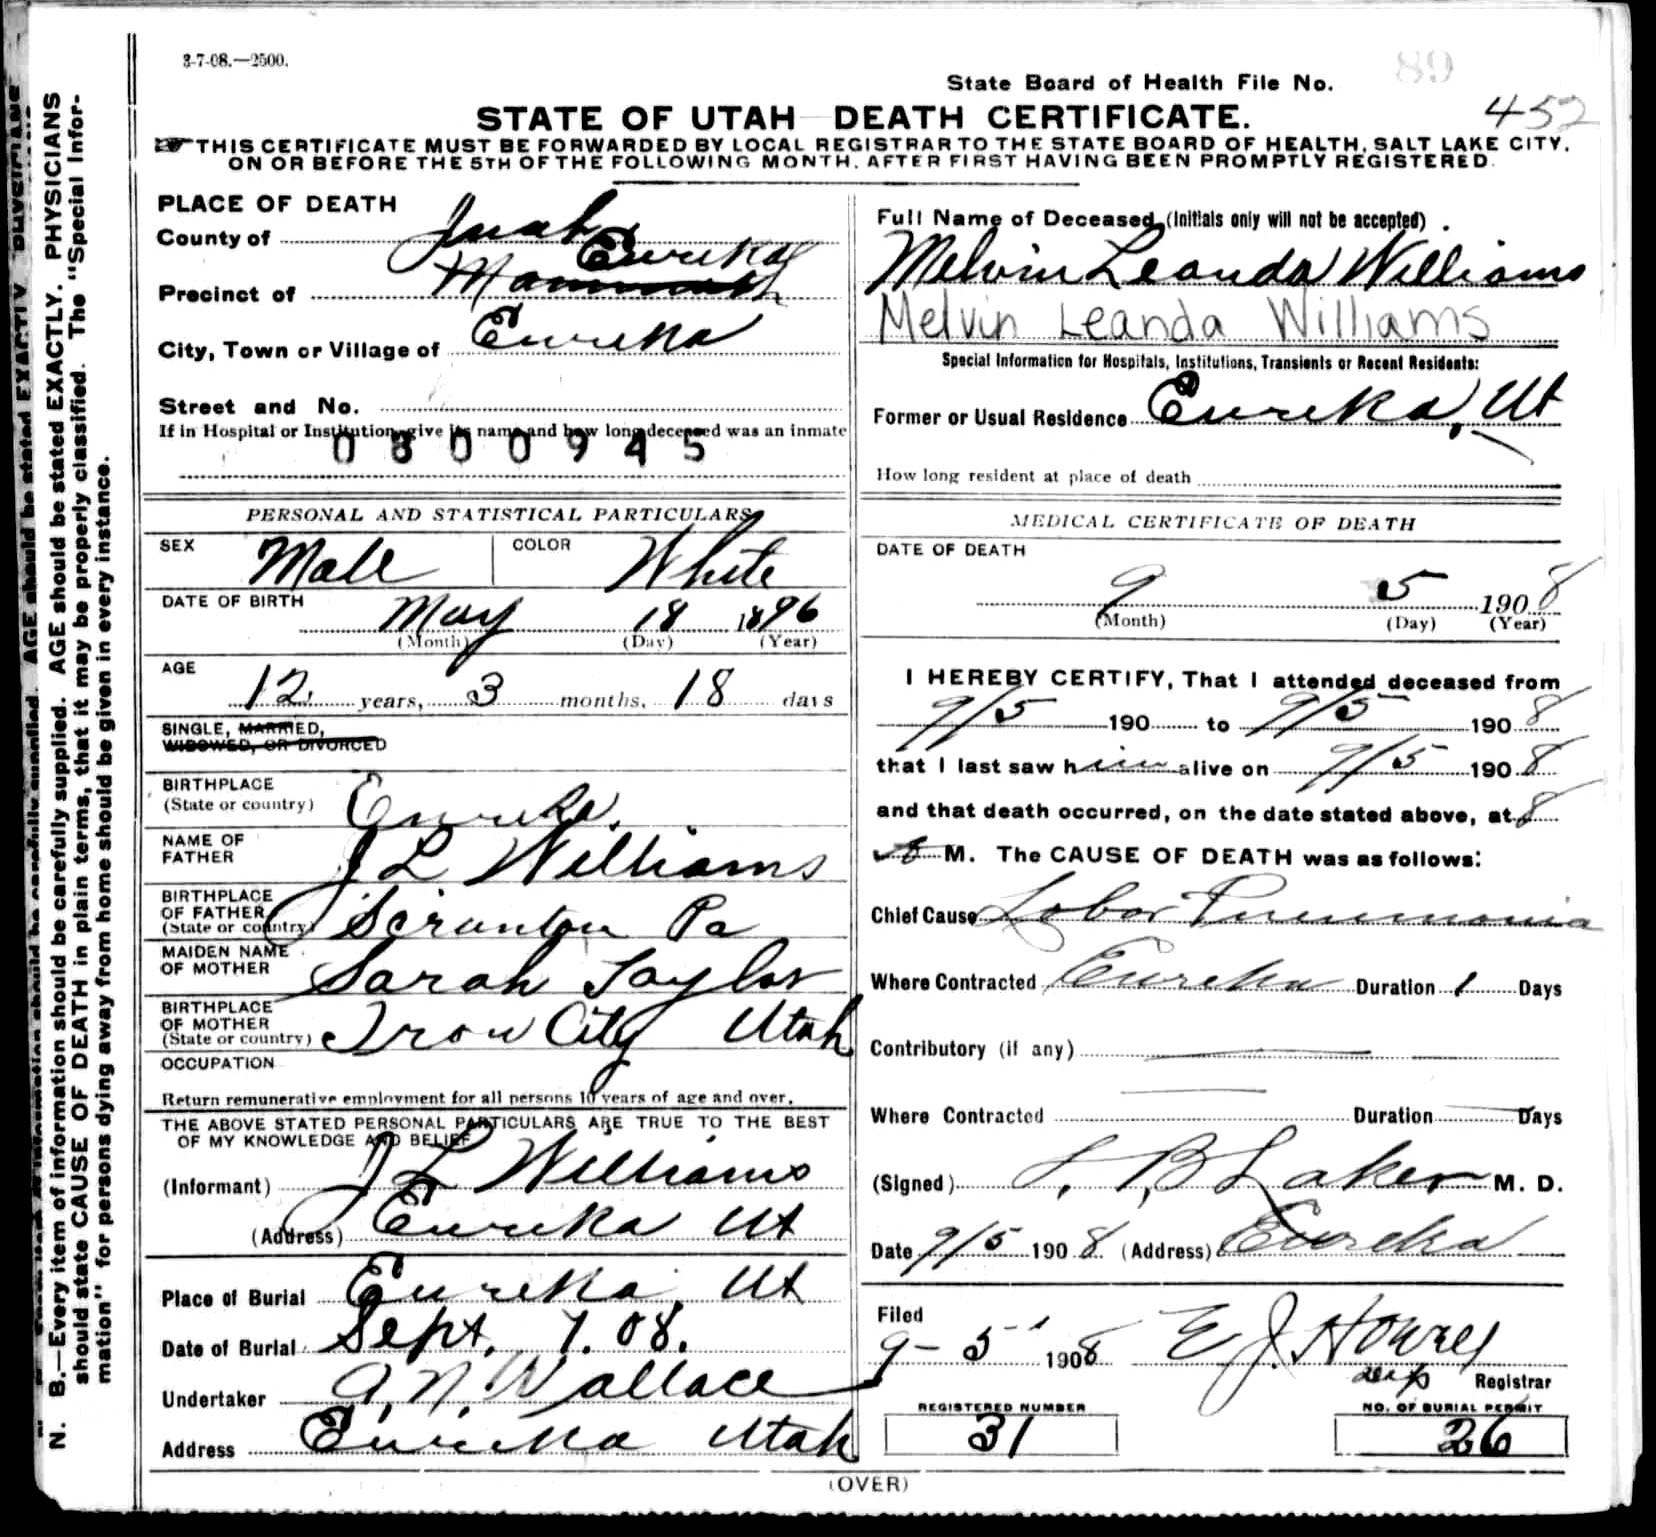 3-7-08.—2500.
89
State Board of Health File No.
452
STATE OF UTAH DEATH CERTIFICATE.
THIS CERTIFICATE MUST BE FORWARDED BY LOCAL REGISTRAR TO THE STATE BOARD OF HEALTH, SALT LAKE CITY,
ON OR BEFORE THE 5TH OF THE FOLLOWING MONTH, AFTER FIRST HAVING BEEN PROMPTLY REGISTERED.
PLACE OF DEATH
County of Juab
Eureka
Precinct of Mammoth
City, Town or Village of Eureka
Street and No.
If in Hospital or Institution, give its name and how long deceased was an inmate
0800945
Full Name of Deceased, (Initials only will not be accepted).
Melvin Leanda Williams
Melvin Leanda Williams
Special Information for Hospitals, Institutions, Transients or Recent Residents:
Former or Usual Residence Eureka, Ut
How long resident at place of death
PERSONAL AND STATISTICAL PARTICULARS
SEX Male COLOR White
DATE OF BIRTH
May 18 1896
(Month) (Day) (Year)
AGE
12 years, 3 months, 18 days
SINGLE, MARRIED,
WIDOWED, OR DIVORCED
BIRTHPLACE
(State or country) Eureka.
NAME OF
FATHER J L Williams
BIRTHPLACE
OF FATHER
(State or country) Scranton Pa
MAIDEN NAME
OF MOTHER Sarah Taylor
BIRTHPLACE
OF MOTHER
(State or country) Iron City Utah
OCCUPATION
Return remunerative employment for all persons 10 years of age and over.
THE ABOVE STATED PERSONAL PARTICULARS ARE TRUE TO THE BEST
OF MY KNOWLEDGE AND BELIEF
(Informant) J L Williams
(Address) Eureka Ut
Place of Burial Eureka Ut
Date of Burial Sept. 7. 08.
Undertaker A. N. Wallace
Address Eureka Utah
MEDICAL CERTIFICATE OF DEATH
DATE OF DEATH
9 5 1908
(Month) (Day) (Year)
I HEREBY CERTIFY, That I attended deceased from
9/5 190 to 9/5 1908
that I last saw him alive on 9/5 1908
and that death occurred, on the date stated above, at 8
M. The CAUSE OF DEATH was as follows:
Chief Cause Lobar Pneumonia
Where Contracted Eureka Duration 1 Days
Contributory (if any)
Where Contracted Duration Days
(Signed) S. B Laker M. D.
Date 9/5 1908. (Address) Eureka
Filed
9-5 1908 E J. Howell
Dep Registrar
REGISTERED NUMBER
31
NO. OF BURIAL PERMIT
26
(OVER)
N. B.—Every item of information should be carefully supplied. AGE should be stated EXACTLY. PHYSICIANS
should state CAUSE OF DEATH in plain terms, that it may be properly classified. The "Special Infor-
mation" for persons dying away from home should be given in every instance.